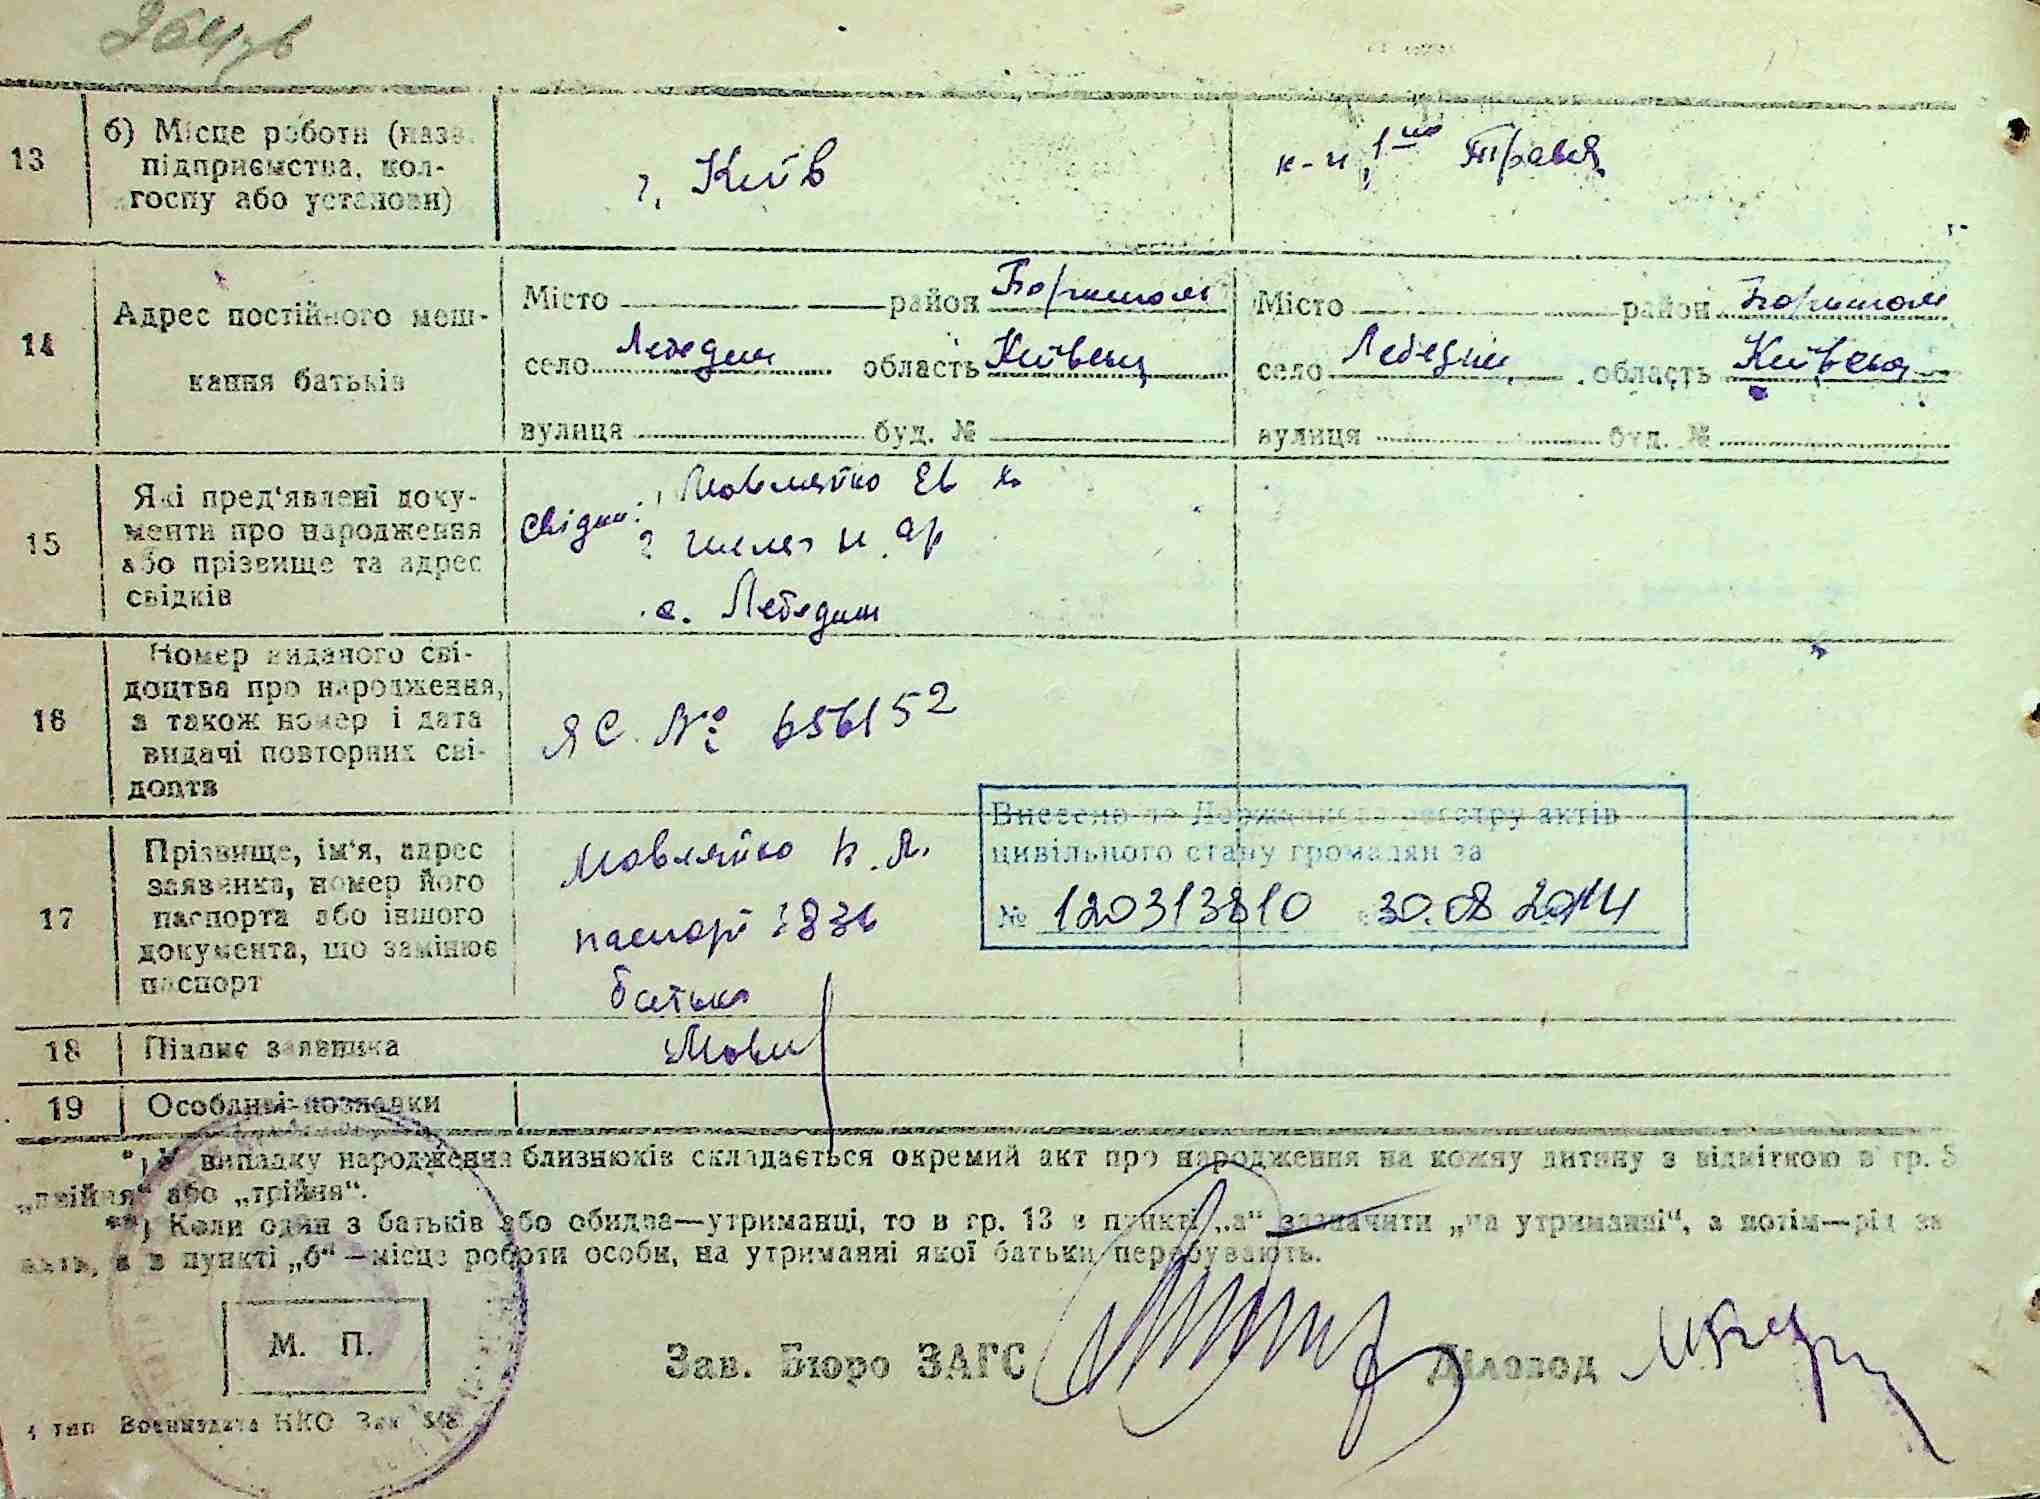 13
б) Місце роботи (назв.
підприємства, кол-
госпу або установи)
г. Київ
к-п 1го Травня
14
Адрес постійного меш-
кання батьків
Місто район Бориспол
село Лебедин область Київськ
вулиця буд. №
Місто район Бориспол
село Лебедин область Київськ
вулиця буд. №
15
Які пред'явлені доку-
менти про народження
або прізвище та адрес
свідків
Свідки: 1 Мовляйко Ев
2
с. Лебедин
16
Номер виданого сві-
доцтва про народження,
а також номер і дата
видачі повторних сві-
доцтв
ЯС № 656152
17
Прізвище, ім'я, адрес
заявника, номер його
паспорта або іншого
документа, що замінює
паспорт
Мовляйко
паспорт
батько
Внесено до Державного реєстру актів
цивільного стану громадян за
№ 120313810 30.08 2014
18
Підпис заявника
Мовл
19
Особливі познавки
*) У випадку народження близнюків складається окремий акт про народження на кожну дитину з відміткою в гр. 3
„двійня“ або „трійня“.
**) Коли один з батьків або обидва—утриманці, то в гр. 13 в пункті „а“ зазначити „на утриманні“, а потім—рід за
нять, а в пункті „б“—місце роботи особи, на утриманні якої батьки перебувають.
М. П.
Зав. Бюро ЗАГС
Діловод
4 тип Воениздата НКО Зак 548